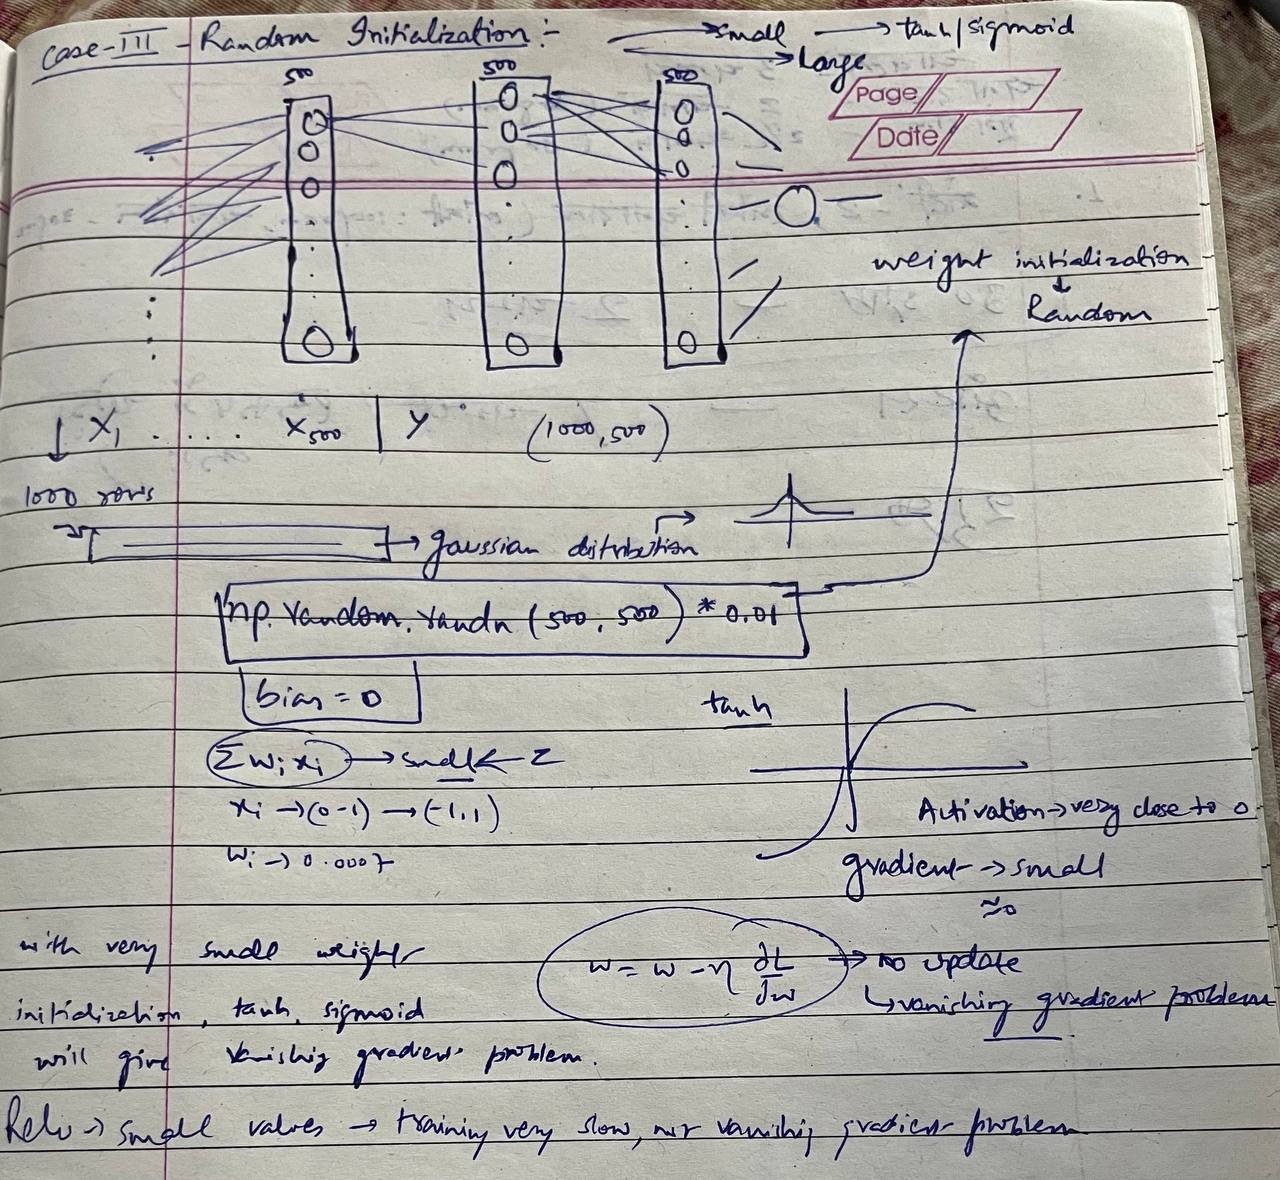 Case-III - Random Initialization :- → small → tanh/sigmoid
→ Large
500 500 500
Page
Date
weight initialization
↓
Random
↓ X1 ..... X500 | Y (1000, 500)
1000 rows
→ gaussian distribution →
np.random.randn (500, 500) * 0.01
bias = 0
tanh
Σwixi → small ← Z
xi → (0-1) → (-1, 1)
Activation → very close to 0
wi → 0.0007
gradient → small
≈0
with very small weights
w = w - η ∂L/∂w → no update
initialization, tanh, sigmoid
↳ vanishing gradient problem
will give vanishing gradient problem.
Relu → small values → training very slow, not vanishing gradient problem